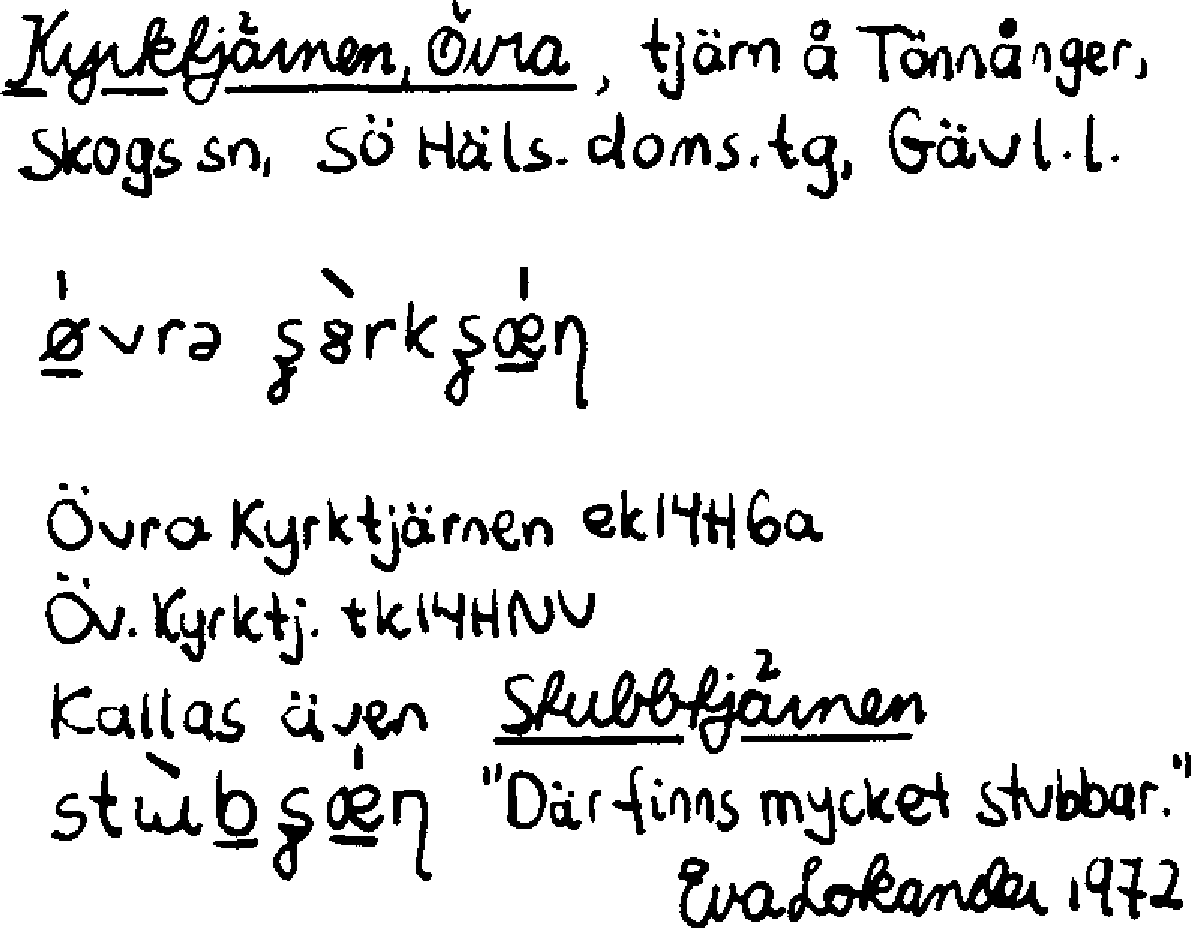 Kyrktjärnen, Övra, tjärn å Tönnånger,
Skogs sn, SÖ Häls. doms.tg, Gävl.l.
Övra Kyrktjärnen ek14H6a
Öv. Kyrktj. tk14HNV
Kallas även Stubbtjärnen
"Där finns mycket stubbar."
Eva Lokander 1972